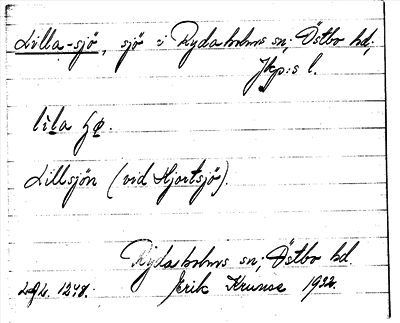 Lilla-sjö, sjö i Rydaholms sn; Östbo hd;
Jkp:s l.
lila
Lillsjön (vid Hjortsjö).
Rydaholms sn; Östbo hd.
1248. Erik Krunse 1932.